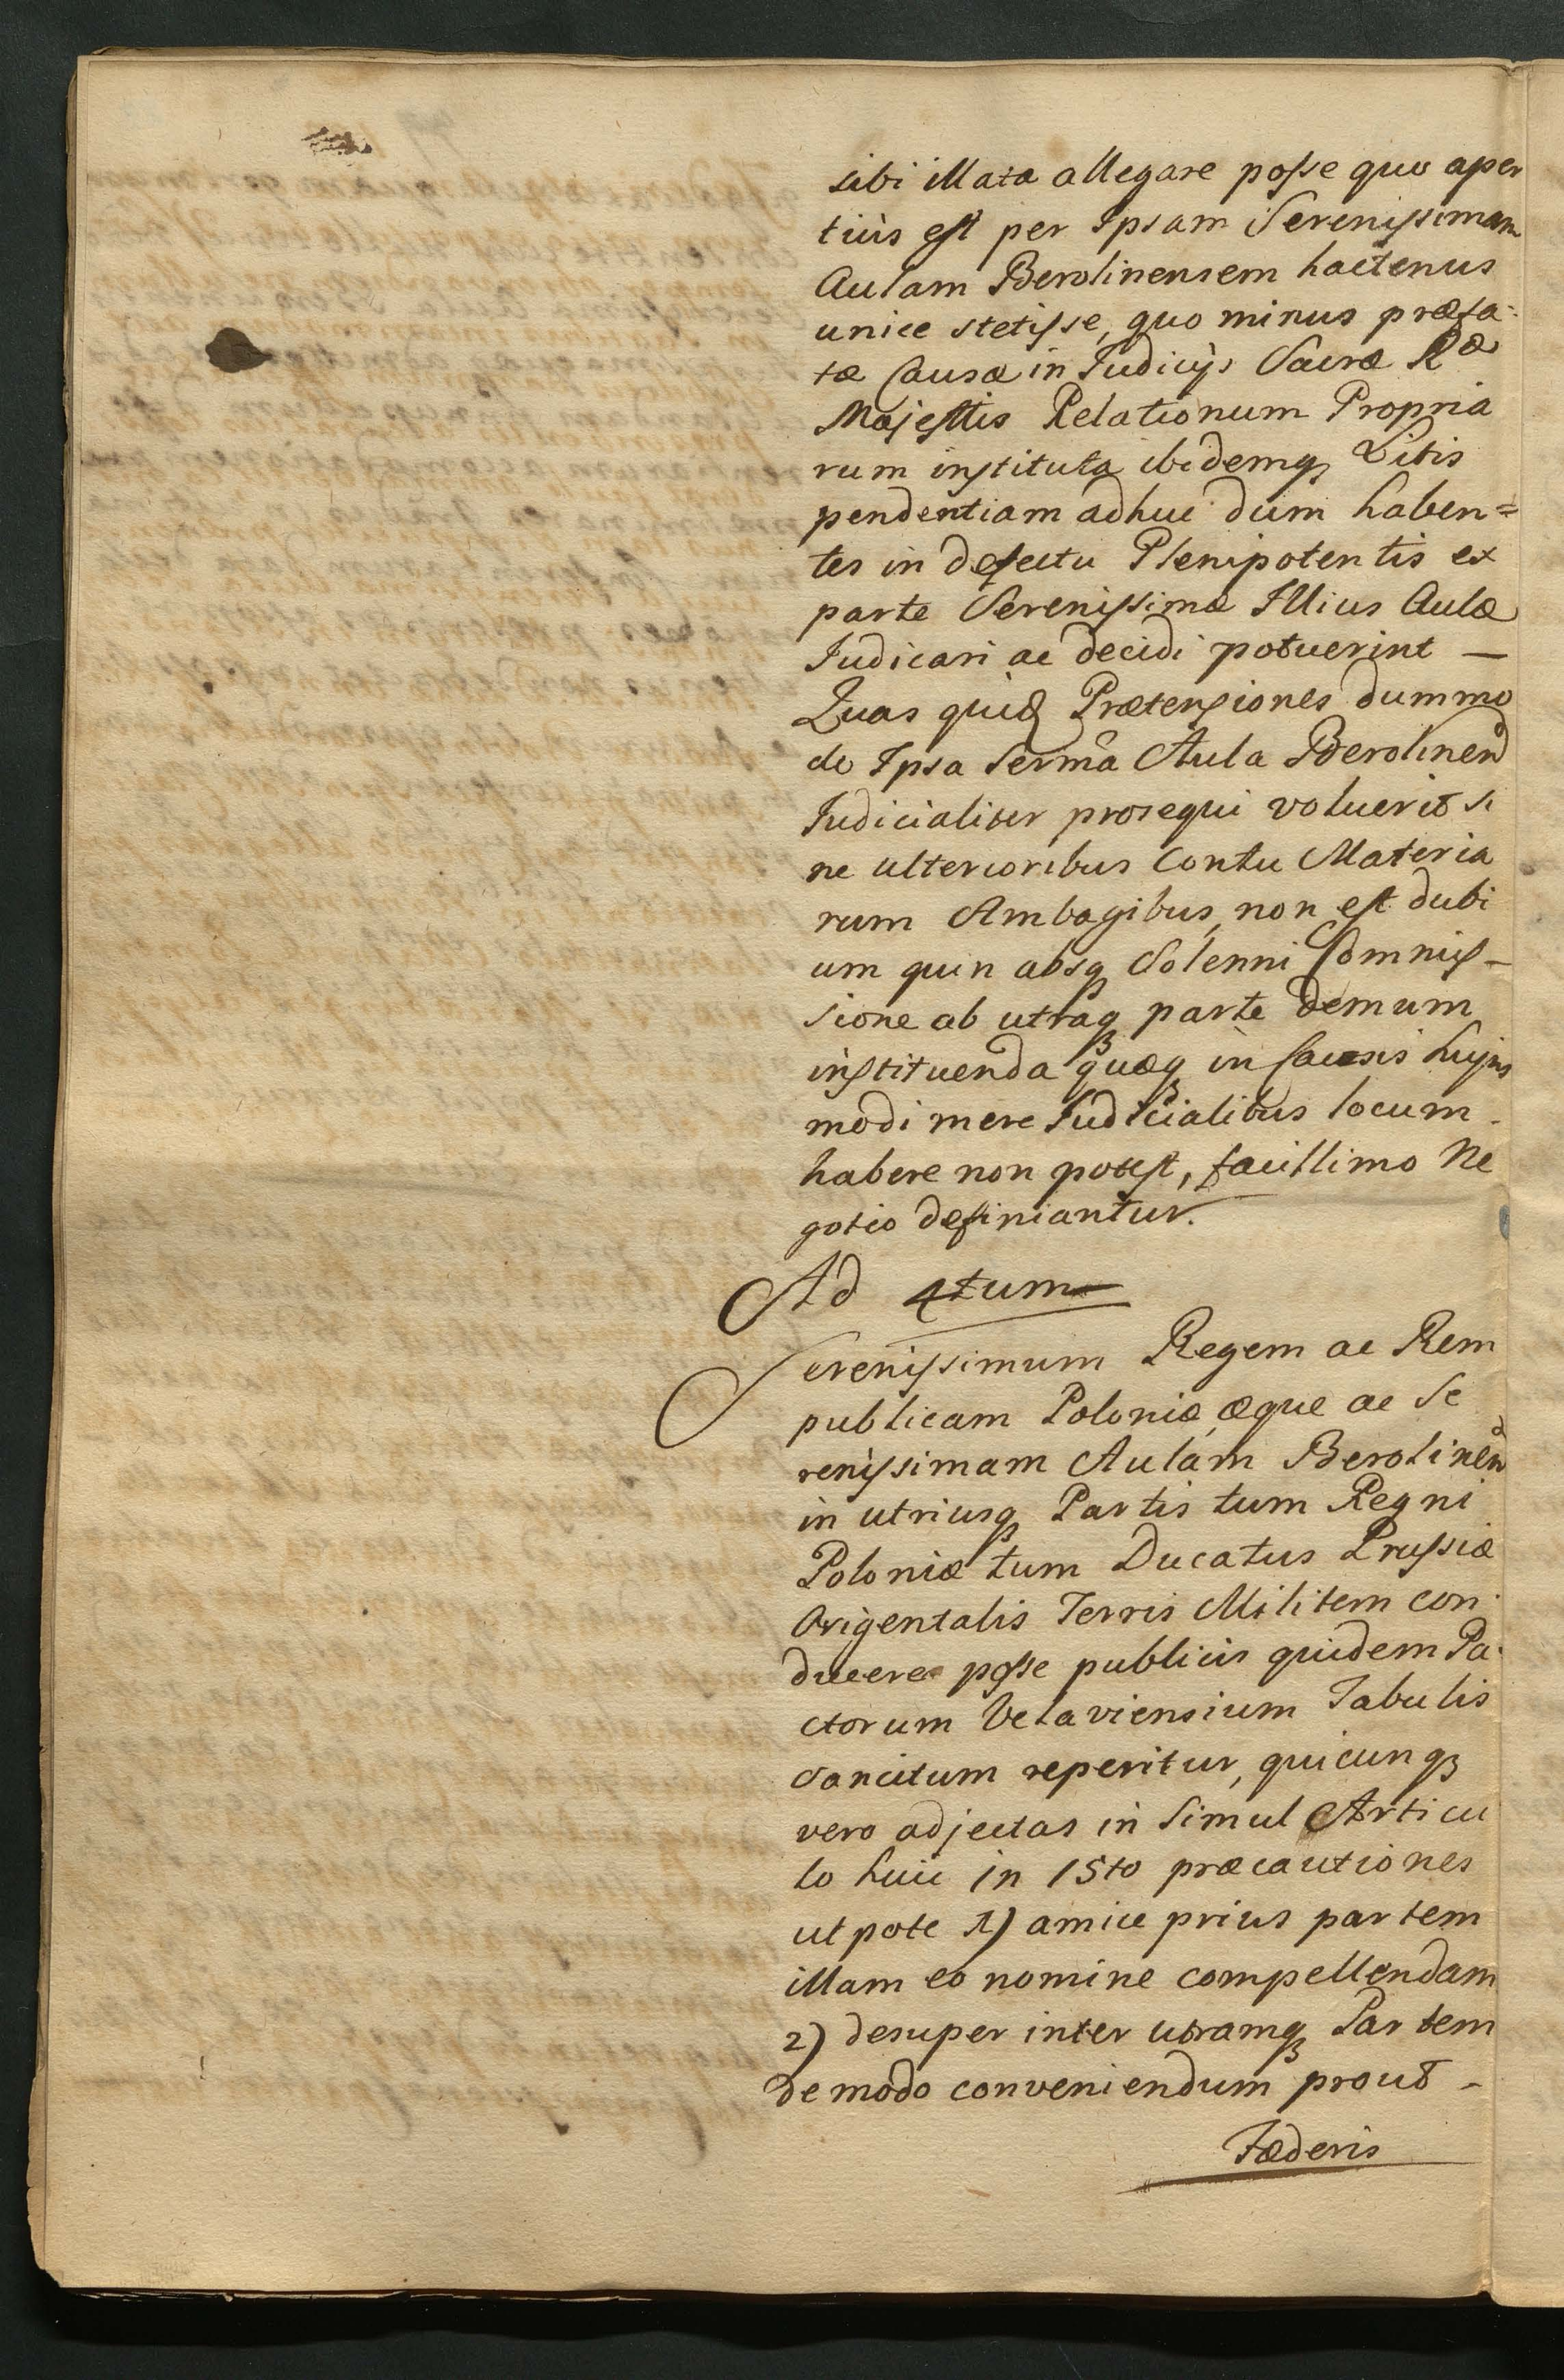 sibi illata allegare posse quo aper
tiùs est per Ipsam Serenissimam
Aulam Berolinensem hactenus
unice stetisse, quo minus præfa-
tæ Causæ in Judicijs Sacræ Ræ
Majestis Relationum Propria
rum instituta ibidemq Litis
pendentiam adhuc dum haben=
tes in defectu Plenipotentis ex
parte Serenissimæ Illius Aulæ
Judicari ac decidi potuerint —
Quas quid Prætensiones dummo
do Ipsa Serma Aula Berolinen
Judicialiter prosequi voluerit si
ne ulterioribus Contu Materia
rum Ambagibus, non est dubi
um quin absq Solenni Commis-
sione ab utraq parte demum
instituenda quæq in Causis hujus
modi mere Judicialibus locum
habere non potest, facillimo Ne
gotio definiantur.
Ad 4tum
Serenissimum Regem ac Rem
publicam Poloniæ, æque ac Se
renissimam Aulam Berolinen
in utriusq Partis tum Regni
Poloniæ tum Ducatus Prussiæ
Origentalis Terris Militem con-
ducere posse publicis quidem Pa-
ctorum Velaviensium Tabulis
sancitum reperitur, quicunq
vero adjectas in Simul Articu
lo huic in 15to præcautiones
ut pote 1) amice prius partem
illam eo nomine compellendam
2) desuper inter utramq Partem
de modo conveniendum prout -
Fæderis